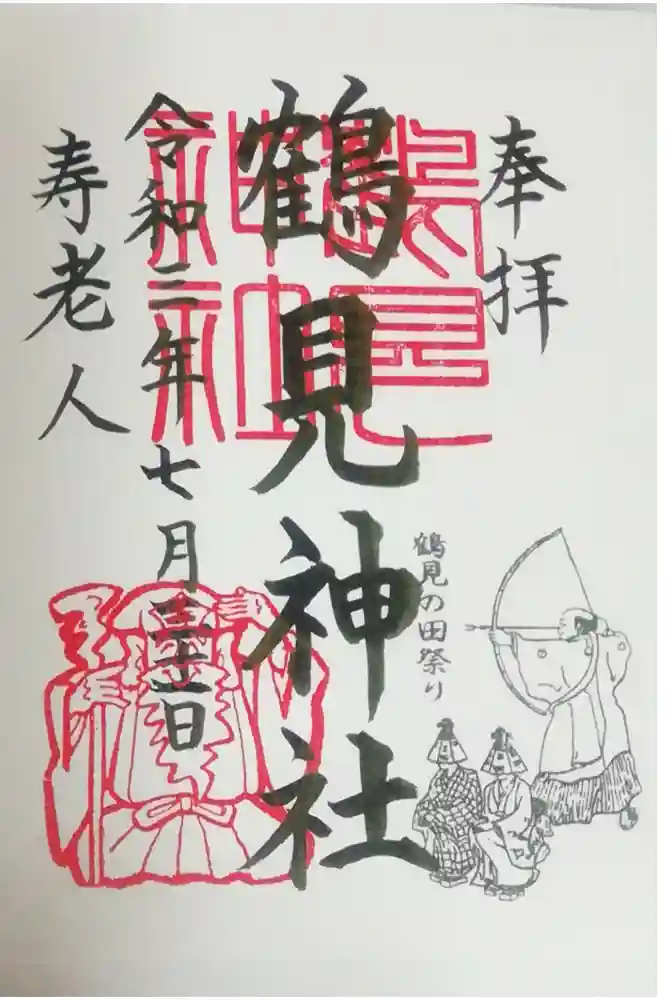 奉拝
鶴見神社
鶴見神社
鶴見の田祭り
令和三年七月三十一日
寿老人